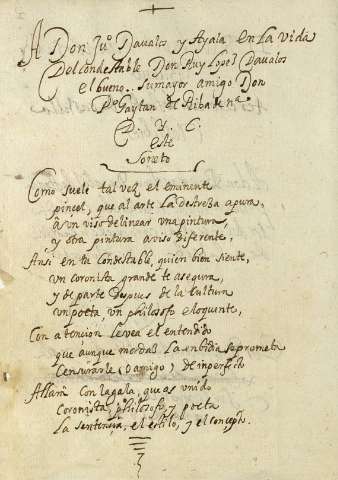 A Don Juº Davalos y Ayala en La vida
Del Condestable Don Ruy Lopez Davalos
el bueno. Su mayor amigo Don
Pº Gaytan de Ribadenª
D. Y. C.
este
Soneto
Como suele tal vez el eminente
pincel, que al arte La destreza apura,
a un viso delinear una pintura,
y otra pintura a viso diferente,
Ansi en tu Condestable, quien bien siente,
un coronista grande te asegura,
y de parte despues de la cultura
un poeta un philosofo eloquente,
Con atencion Le vea el entendido
que aunque mordaz La imbidia se prometa
Censurarle (o amigo) de inperfecto
Allará con la gala, que as unido
Coronista, philosofo, y poeta
La sentencia, el estilo, y el concepto.